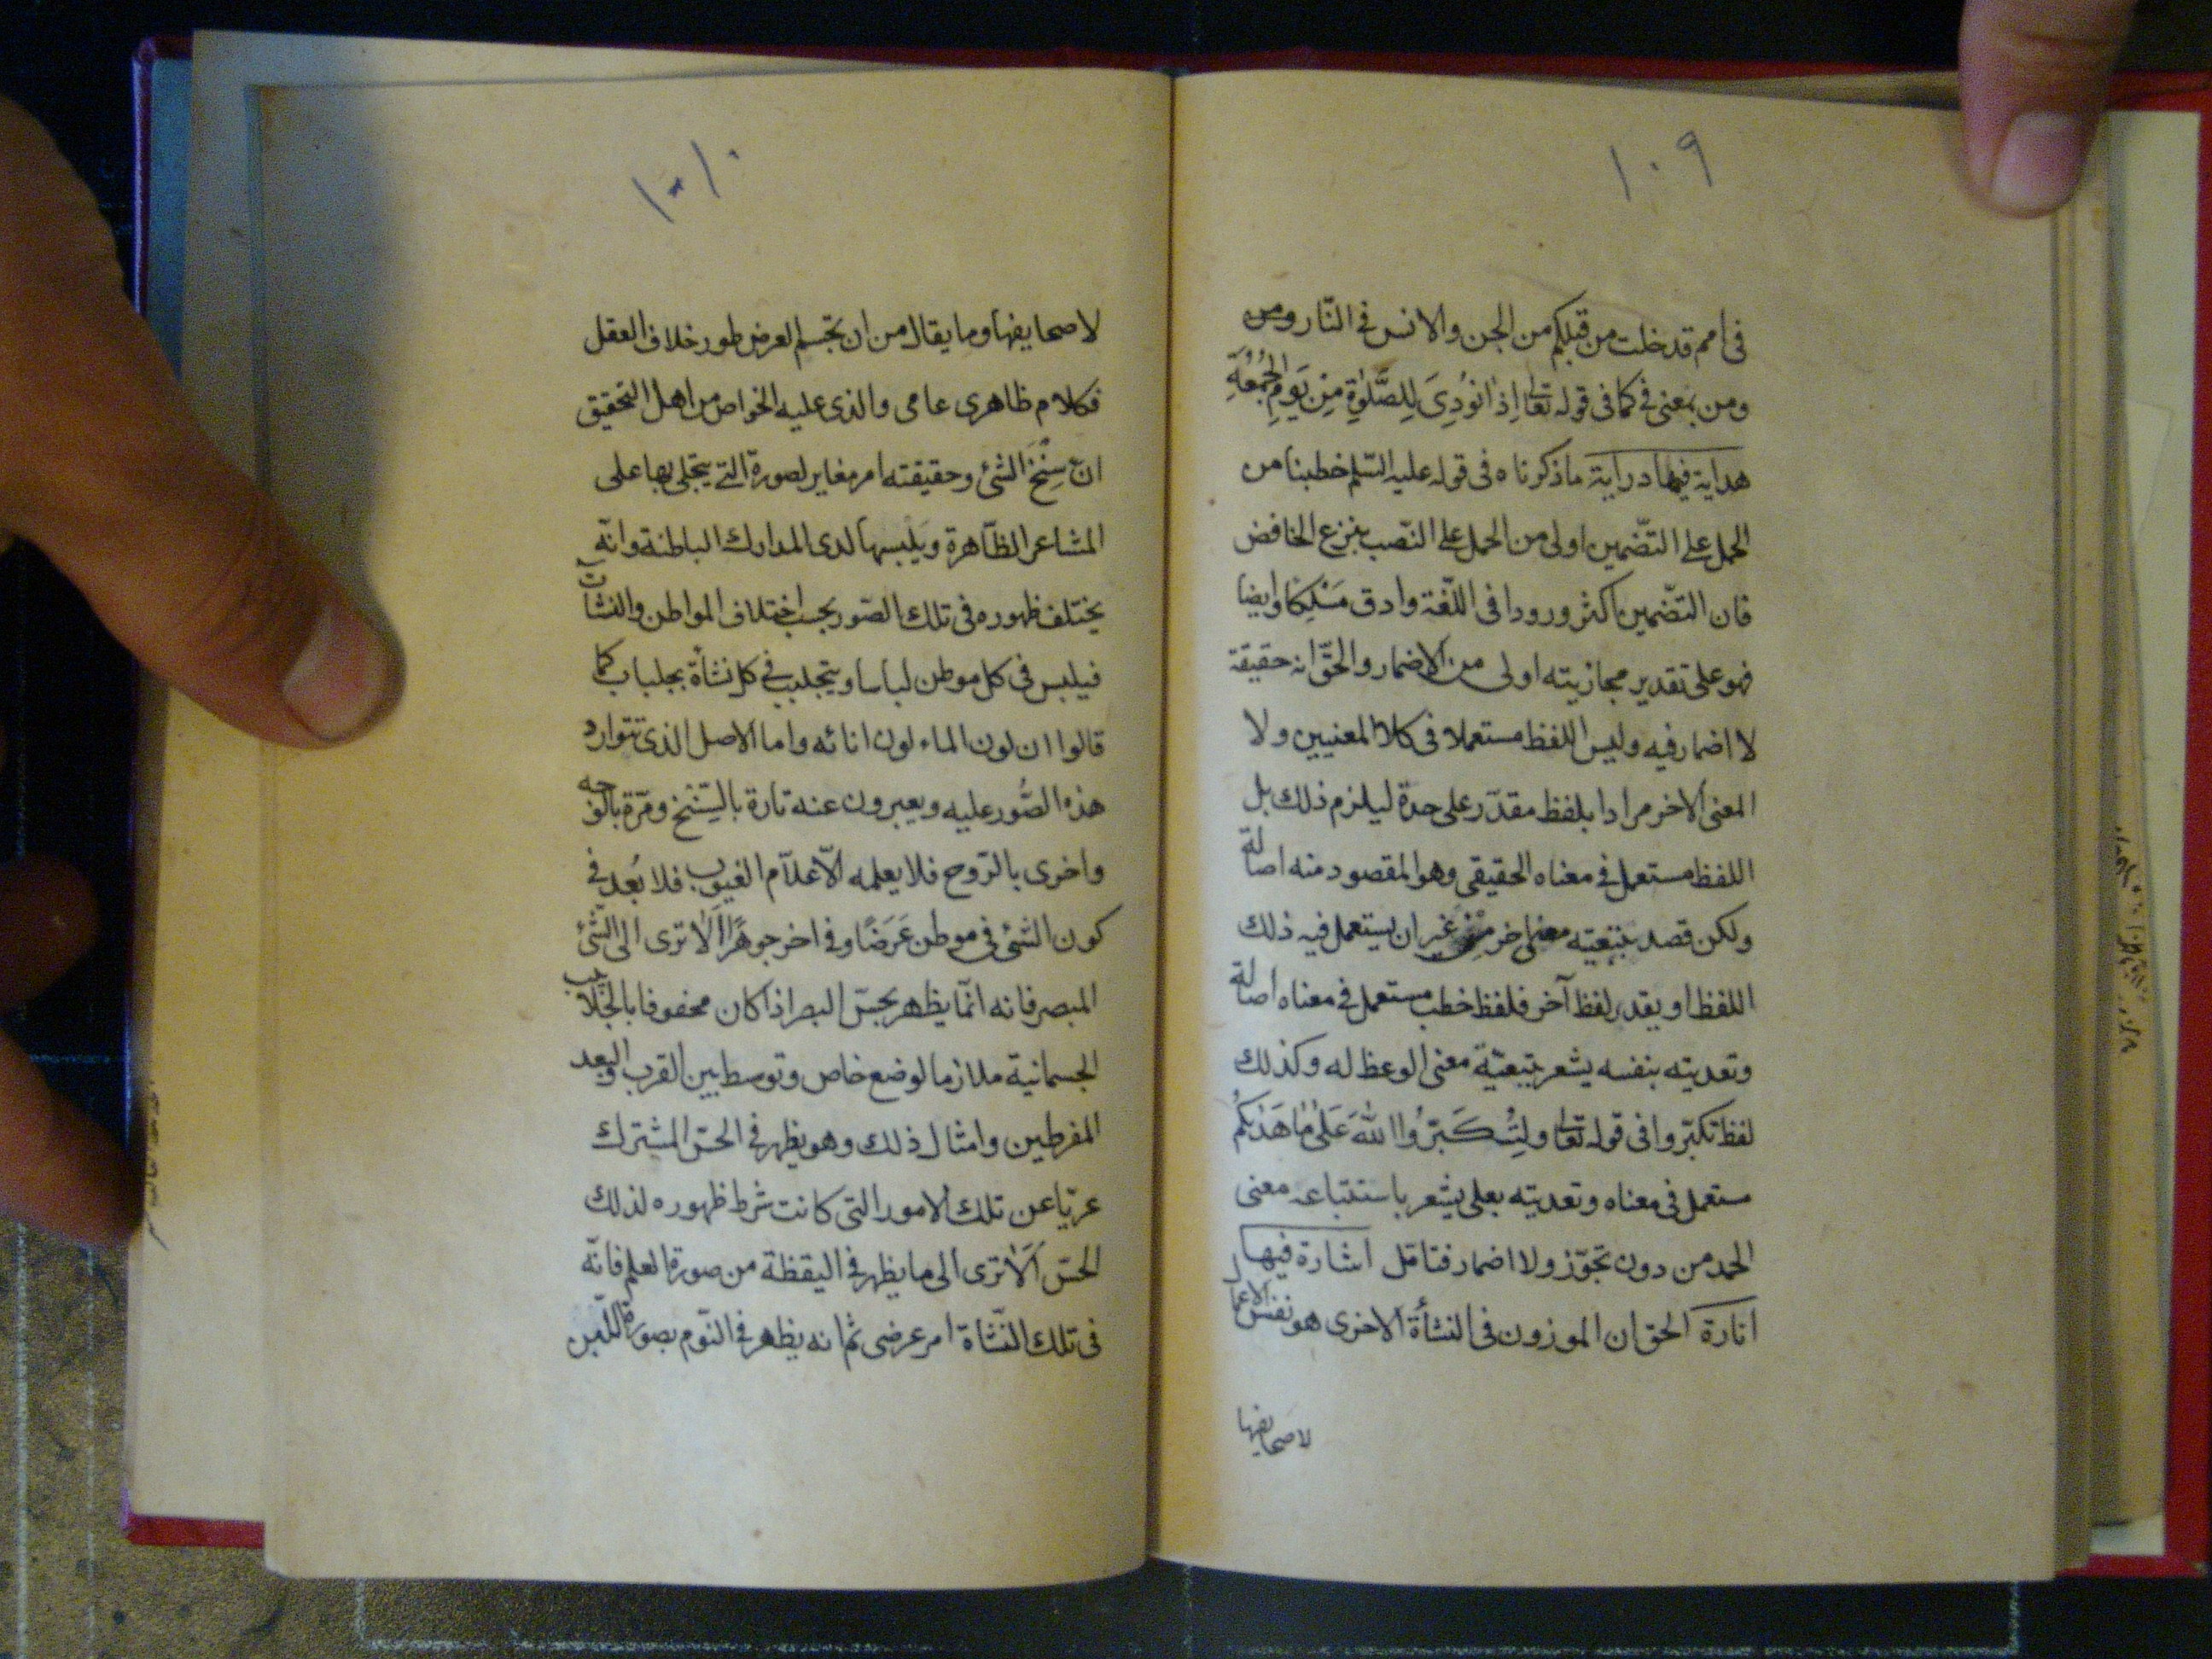 ١٠٩
فى امم قد خلت من قبلكم من الجن والانس فى النّار ومن
ومن بمعنى فى كما فى قوله تعالى اِذا نُودِىَ لِلصَّلوٰةِ مِنْ يَومِ الْجُمُعَةِ
هداية فيها دراية ما ذكرناه فى قوله عليه السّلم خطبنا من
الحمل على التّضمين اولى من الحمل على النّصب بنزع الخافض
فان التّضمين اكثر ورودا فى اللّغة وادق مَسْلِكًا وايضا
فهو على تقدير مجازيته اولى من الاضمار والحقّ انه حقيقة
لا اضمار فيه وليس اللفظ مستعملا فى كلا المعنيين ولا
المعنى الاخر مرادا بلفظ مقدّر على حدة ليلزم ذلك بل
اللفظ مستعمل فى معناه الحقيقى وهو المقصود منه اصالة
ولكن قصد بتبعيته معنى اخر من غير ان يستعمل فيه ذلك
اللفظ او يقدر لفظ آخر فلفظ خطب مستعمل فى معناه اصالة
وتعديته بنفسه يشعر بتبعيّة معنى الوعظ له وكذلك
لفظ تكبّروا فى قوله تعالى ولِتُكَبِّرُوا اللهَ عَلىٰ مٰا هَدٰيكُمْ
مستعمل فى معناه وتعديته بعلى يشعر باستتباعه معنى
الحمد من دون تجوّز ولا اضمار فتامّل اشارة فيها
انارة الحق ان الموزون فى النشأة الاخرى هو نفس الاعمال
لاصحايفها
١١٠
لاصحايفها وما يقال من ان تجسم العرض طور خلاف العقل
فكلام ظاهرى عامى والذى عليه الخواص من اهل التحقيق
انّ سِنْخَ الشئ وحقيقته امر مغاير لصورة التى يتجلى بها على
المشاعر الظّاهرة ويلبسها لدى المدارك الباطنة وانّه
يختلف ظهوره فى تلك الصّور بحسب اختلاف المواطن والنشآت
فيلبس فى كل موطن لباسا ويتجلبب فى كل نشأة بجلباب كما
قالوا ان لون الماء لون انائه واما الاصل الذى تتوارد
هذه الصُّور عليه ويعبرون عنه تارة بالسِّنْخ ومَرّة بالوجه
واخرى بالرّوح فلا يعلمه الّا علّام الغيوب فلا بُعد فى
كون الشئ فى موطن عَرَضًا وفى اخر جوهرًا اَلا ترى الى الشّئ
المبصر فانه انّما يظهر بحسّ البصر اذا كان محفوفا بالجَلابيب
الجسمانية ملازما لوضع خاص وتوسط بين القرب والبعد
المفرطين وامثال ذلك وهو يظهر فى الحسّ المشترك
عريّا عن تلك الامور التى كانت شرط ظهوره لذلك
الحسّ اَلا ترى الى ما يظهر فى اليقظة من صورة العلم فانّه
فى تلك النّشاة امر عرضى ثم انه يظهر فى النّوم بصورة اللّبن